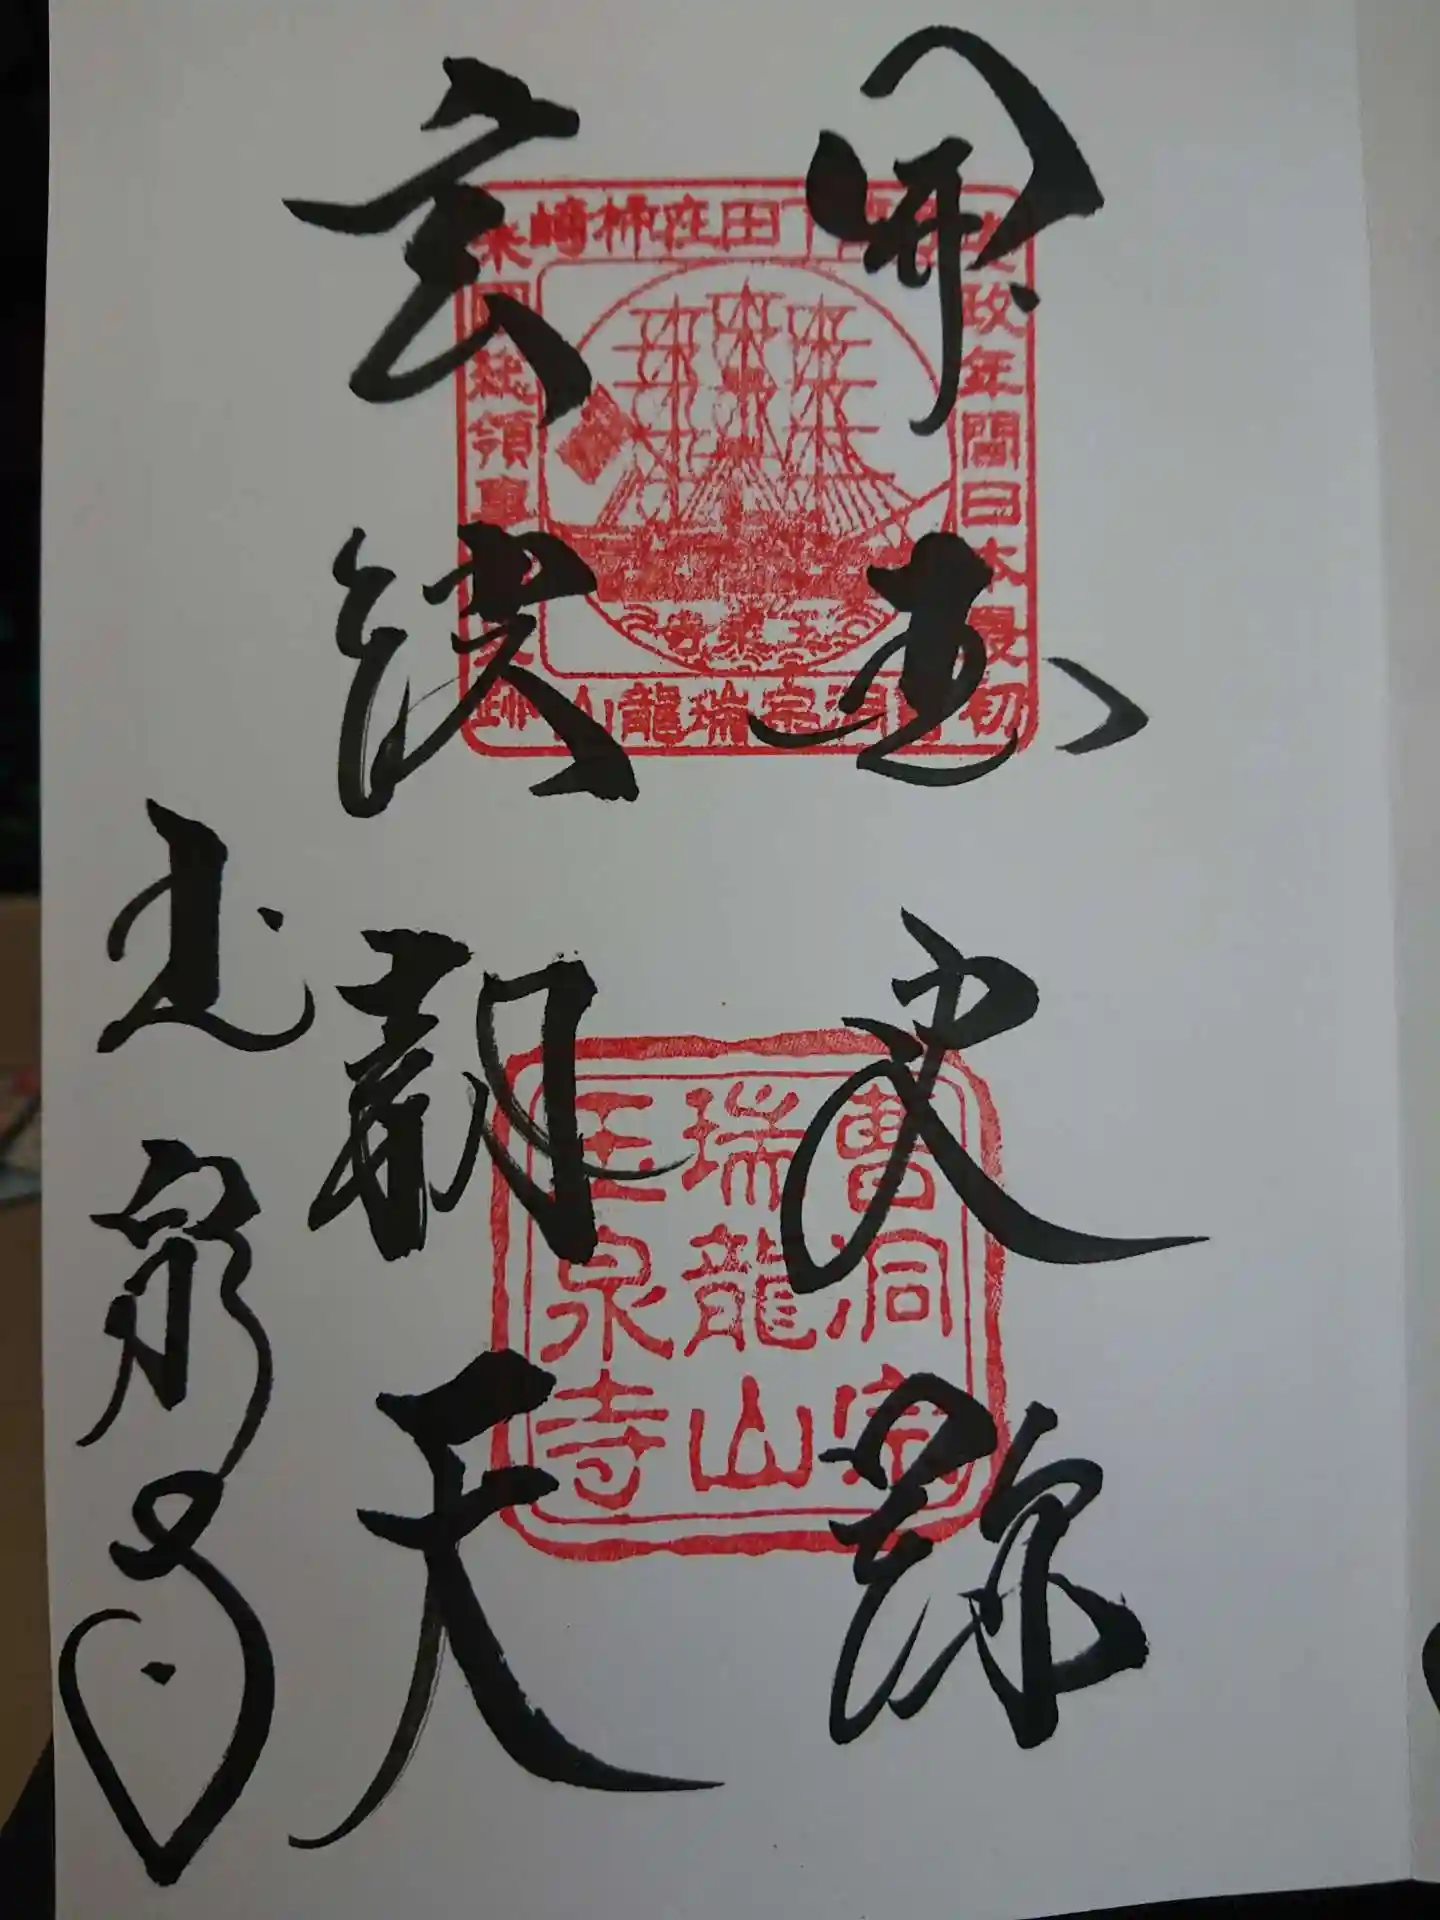 開国史跡
下田在柿崎
政年間日本最初
米國総領事
玉泉寺
曹洞宗瑞龍山
天
曹洞宗
瑞龍山
玉泉寺
玉泉寺